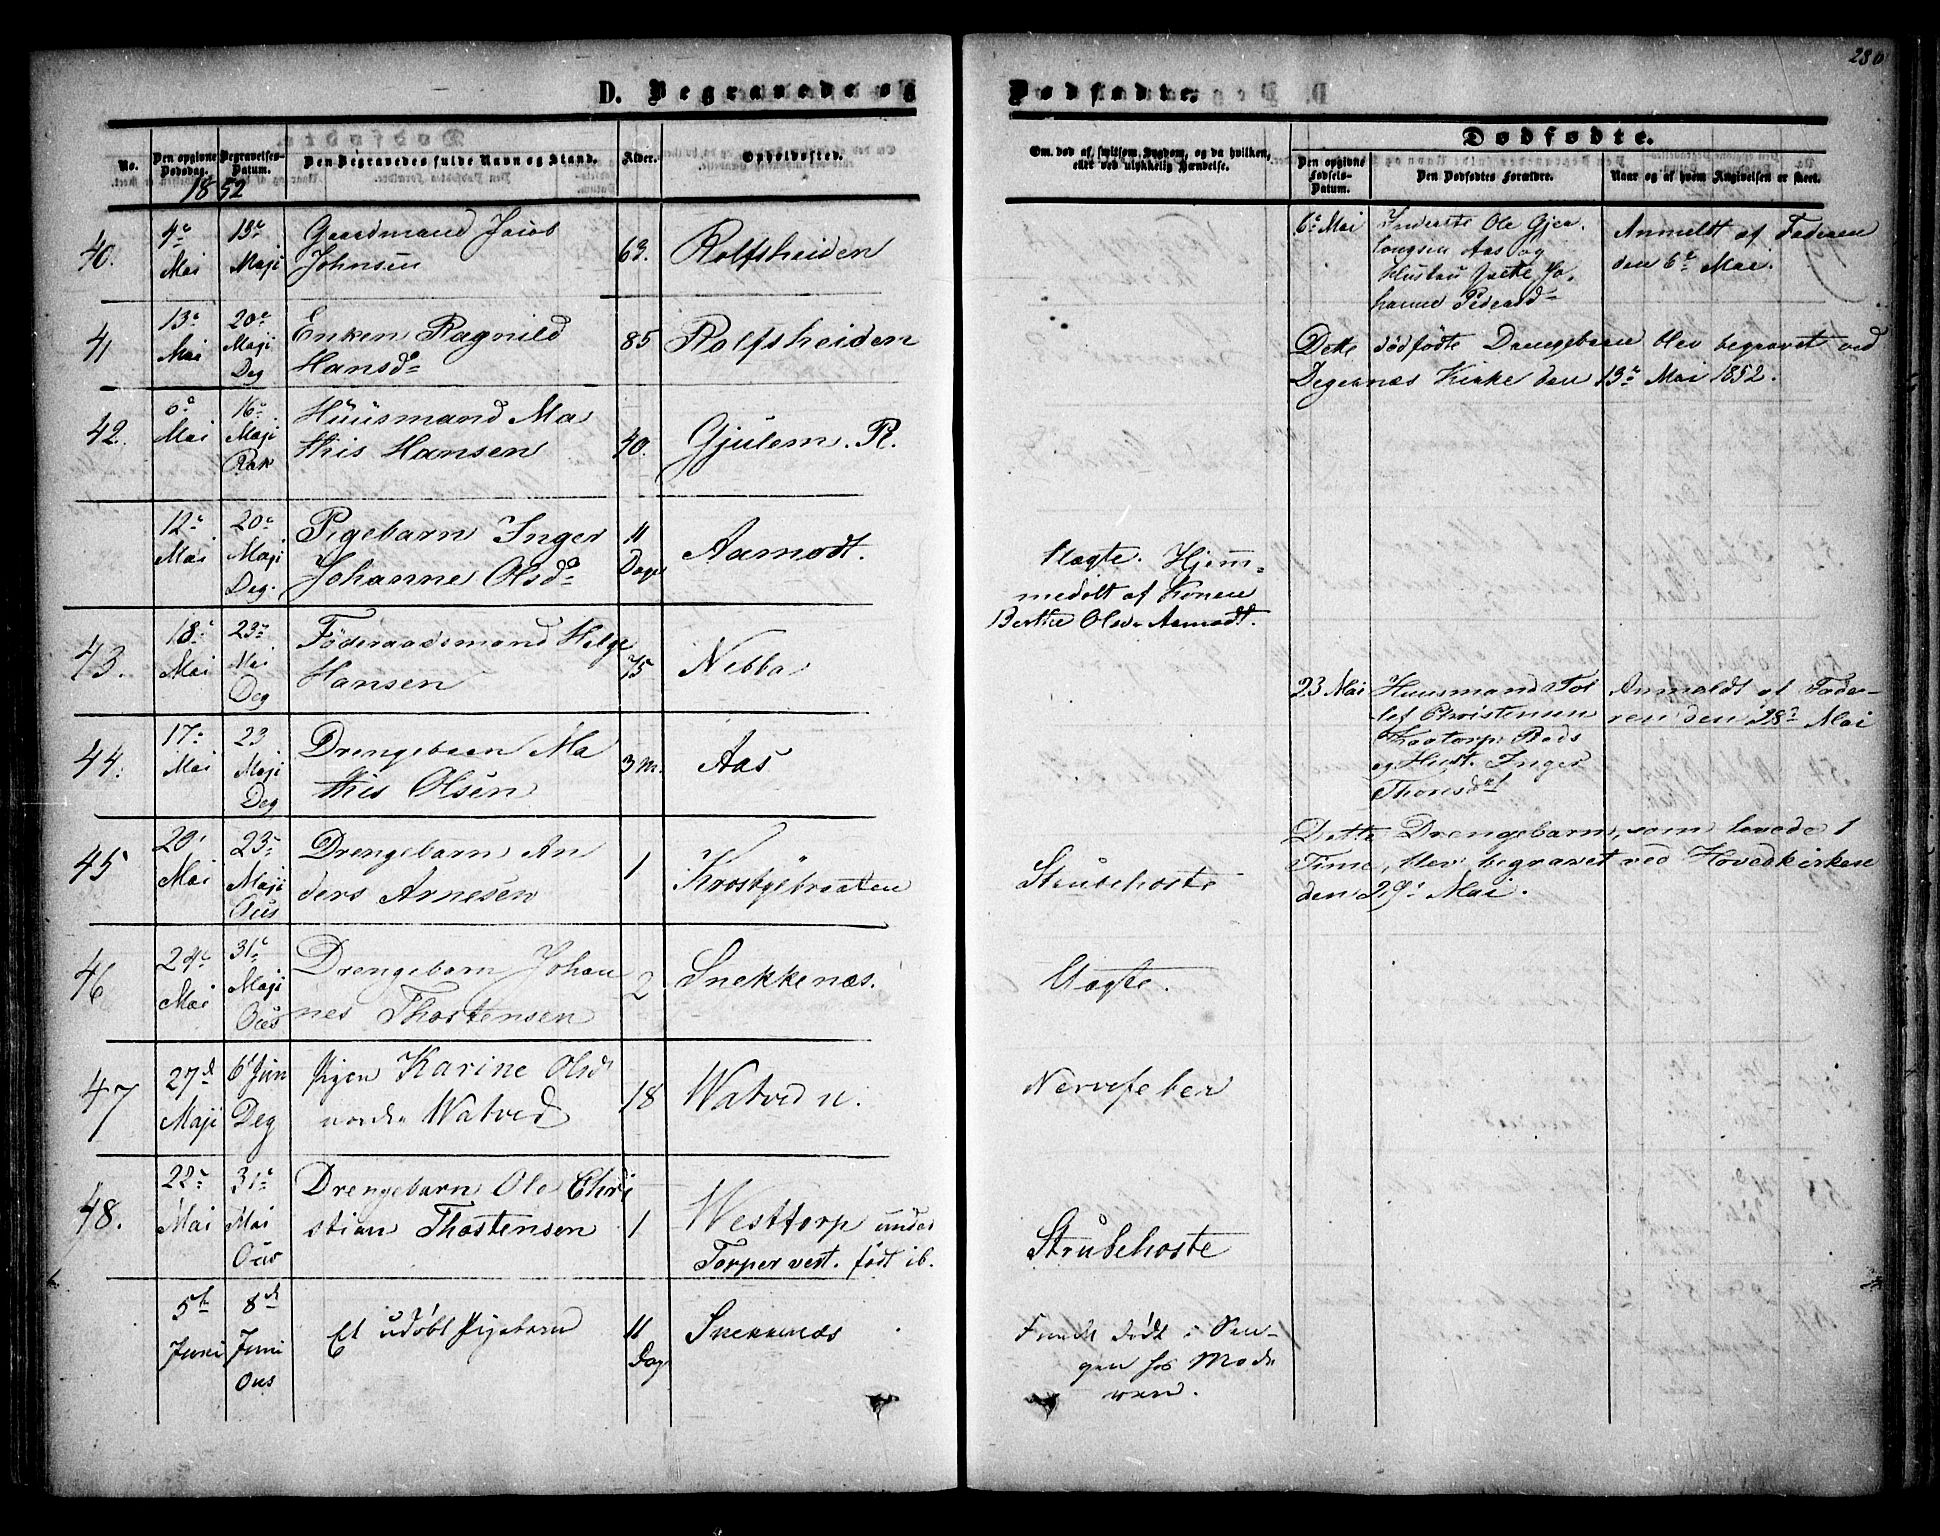 280
D. Begravede og Dødfødte.
No.
Den opgivne Dødsdag.
Begravelses-Datum.
Den Begravedes fulde Navn og Stand.
Alder.
Opholdssted.
Om død af smitsom Sygdom, og da hvilken,
eller ved ulykkelig Hændelse.
Dødfødte.
Den opgivne Fødsels-Datum.
Den Dødfødtes Forældre.
Naar og af hvem Angivelsen er skeet.
1852
40. Mai Maji
Gaardmand Jacob
Johnsen
63. Rolfsheiden
6 Mai
Inderste Ole
Aas og
Hustru
hanne Pedersd
Anmeldt af Faderen
den 6 Mai.
41 13 Mai 20 Maji Deg
Enken Ragnild
Hansd
85 Rolfsheiden
Dette dødfødte Drengebarn blev begravet ved
Degernæs Kirke den 13 Mai 1852.
42. 6 Mai 16 Maji Rak
Huusmand Ma
this Hansen
40. Gjulem. R.
12 Mai 20 Maji Deg.
Pigebarn Inger
Johanne Olsd
11 Dage Aamodt.
Slagte. Hjem=
medøbt af Konen
Berthe Olsd Aamodt.
43. 18 Mai 23 Mai Deg
Föderaadsmand Helge
Hansen
75 Nebba
23 Mai
Huusmand Tol
lef Christensen
Røds
og Hust. Inger
Thorisd
Anmeldt af Fade-
ren den 28 Mai
44. 17 Mai 23 Maji Deg
Drengebarn Ma
this Olsen
3 M. Aas
Dette Drengebarn, som levede 1
Time, blev begravet ved Hovedkirken
den 29 Mai.
45 20 Mai 23 Maji Ous
Drengebarn An
ders Arnesen
1 Krosbybraaten
Strubehoste
46 24 Mai 31 Maji Ous
Drengebarn Johan
nes Thostensen
2 Snekkenæs.
Slagte.
47 27 Maji 6 Juni Deg
Pigen Karine Olsd
nordre Watved
18 Watved n.
Nervefeber
48. 22 Mai 31 Mai Ous
Drengebarn Ole Chri
stian Thostensen
1 Westtorp under
Torper vest. født ib.
Strubehoste
5 Juni 8 Juni Ous
Et udøbt Pigebarn
11 Dage Snekkenæs
Fundet dødt i Sen-
gen hos Mode
ren.